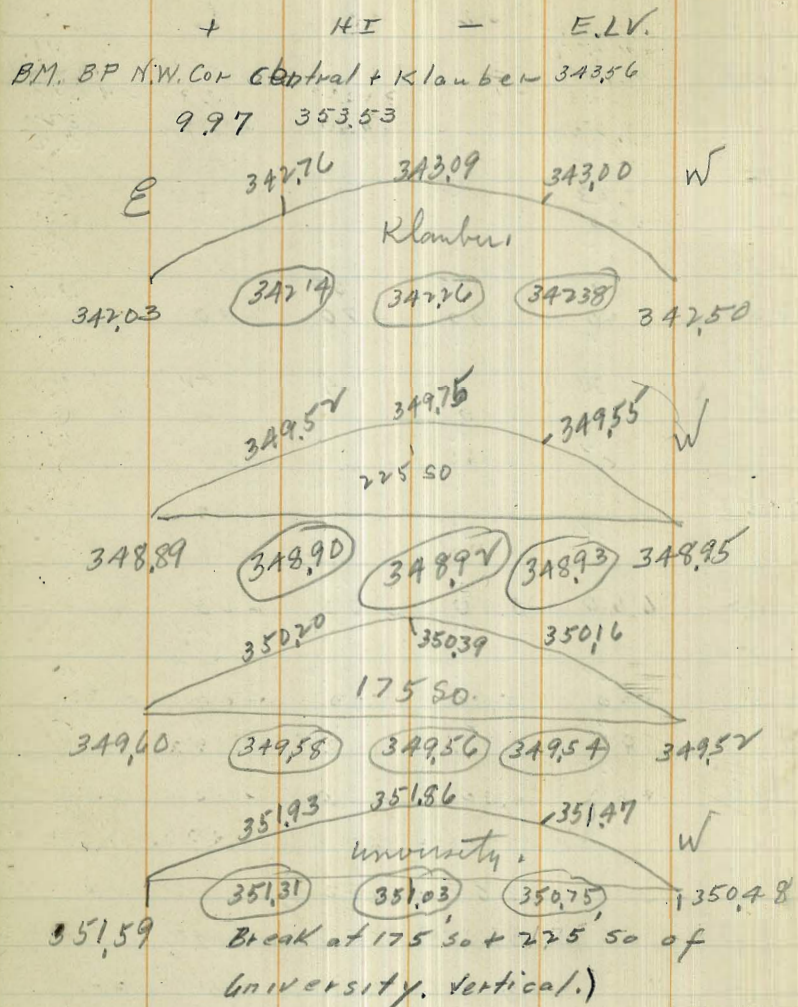 + HI - E.LV.
B.M. BP N.W. Cor Central + Klauber 343.56
9.97 353.53
E 342.76 343.09 343.00 W
Klauber.
342.03 342.14 342.26 342.38 342.50
349.52 349.75 349.55 W
225' SO
348.89 348.90 348.92 348.93 348.95
350.20 350.39 350.16
175 SO.
349.60 349.58 349.56 349.54 349.52
351.93 351.86 351.47 W
University.
351.31 351.03 350.75 350.48
351.59 Break at 175' so + 225' so of
University. Vertical.)